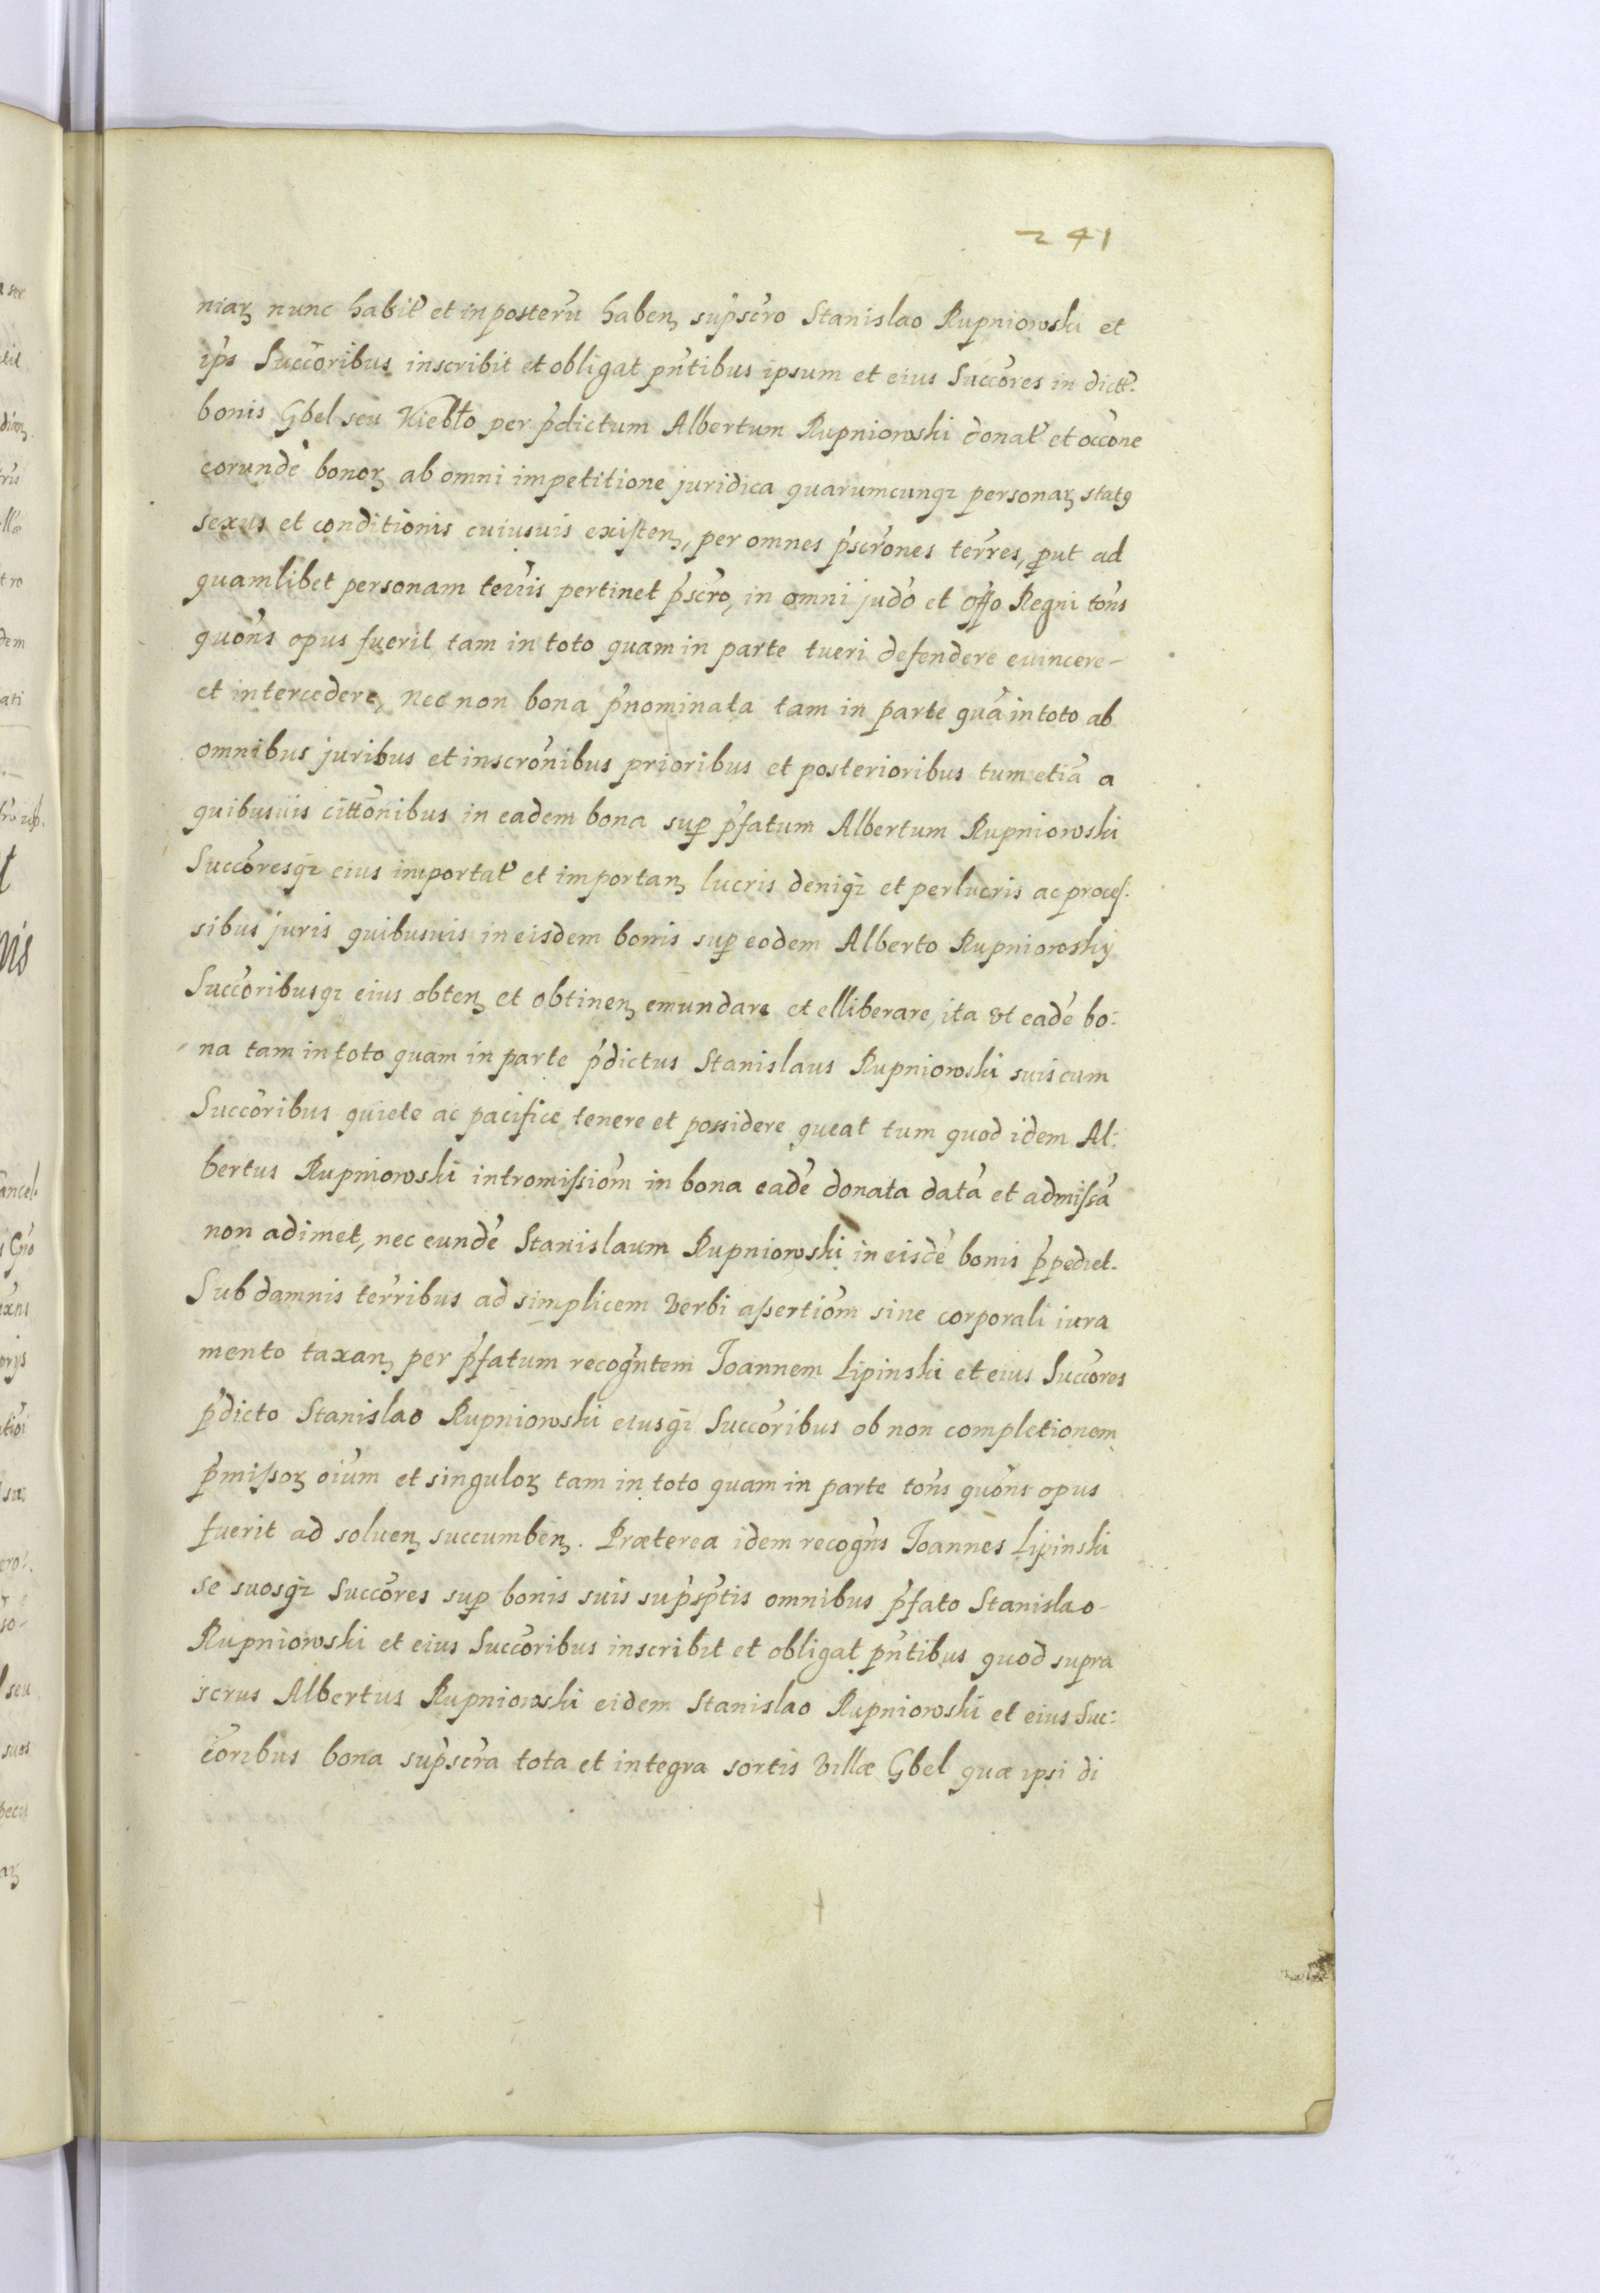 241
niaꝝ nunc habit̃ et in posterũ haben̨ sup̃scr̃o Stanislao Rupniowski et
ip̃s Succ̃oribus inscribit et obligat pñtibus ipsum et eius Succ̃ores in dict̃.
bonis Gbel seu Kiebło per p̃dictum Albertum Rupniowski donat̃ et occ̃one
eorundẽ bonoꝝ ab omni impetitione juridica quarumcunqꝫ personaꝝ statꝯ
sexus et conditionis cuiusuis existen̨, per omnes p̃scr̃ones terr̃es, ꝓut ad
quamlibet personam terr̃is pertinet p̃scr̃o, in omni jud̃o et off̃o Regni tõns
quõns opus fuerit tam in toto quam in parte tueri defendere euincere-
et intercedere, nec non bona p̃nominata tam in parte quã in toto ab
omnibus juribus et inscr̃onibus prioribus et posterioribus tum etiã a
quibusuis citt̃onibus in eadem bona suꝑ p̃fatum Albertum Rupniowski
Succ̃oresqꝫ eius importat̃ et importan̨ lucris deniqꝫ et perlucris ac proces.
sibus juris quibusuis in eisdem bonis suꝑ eodem Alberto Rupniowskÿ
Succ̃oribusqꝫ eius obten̨ et obtinen̨ emundare et elliberare, ita Ut eadẽ bo:
-na tam in toto quam in parte p̃dictus Stanislaus Rupniowski suis cum
Succ̃oribus quiete ac pacifice tenere et possidere queat tum quod idem Al:
bertus Rupniowski intromissiõm in bona eadẽ donata datã et admissã
non adimet, nec eundẽ Stanislaum Rupniowski in eisdẽ bonis p̃pediet.
Sub damnis terr̃ibus ad simplicem Verbi assertiõm sine corporali iura
mento taxan̨ per p̃fatum recog̃ntem Joannem Lipinski et eius Succ̃ores
p̃dicto Stanislao Rupniowski eiusqꝫ Succ̃oribus ob non completionem
p̃missoꝝ oĩum et singuloꝝ tam in toto quam in parte tõns quõns opus
fuerit ad soluen̨ succumben̨. Præterea idem recog̃ns Joannes Lipinski
se suosqꝫ Succ̃ores suꝑ bonis suis sup̃sp̃tis omnibus p̃fato Stanislao-
Rupniowski et eius Succ̃oribus inscribit et obligat pñtibus quod supra
scrus Albertus Rupniowski eidem Stanislao Rupniowski et eius Suc:
c̃oribus bona sup̃scr̃a tota et integra sortis Villæ Gbel quæ ipsi di